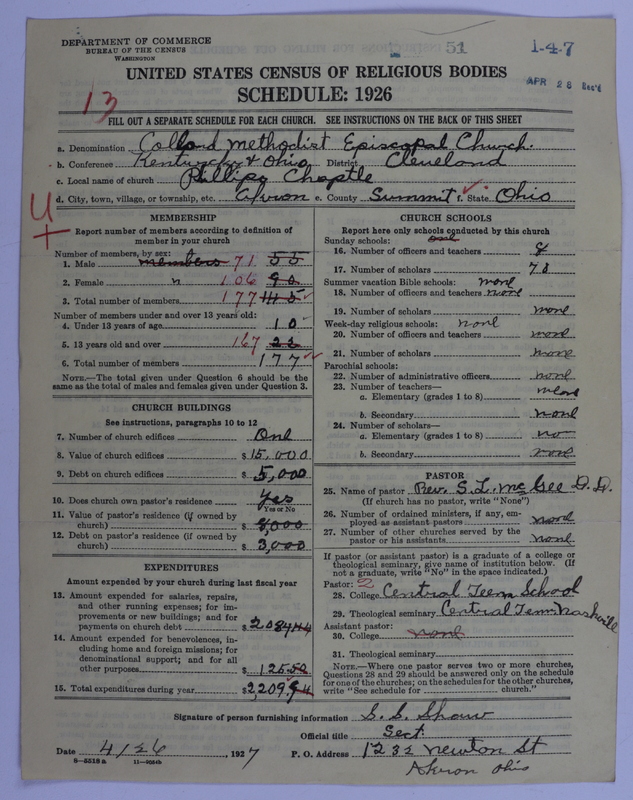 DEPARTMENT OF COMMERCE
BUREAU OF THE CENSUS
WASHINGTON
51
1-4-7
APR 28 Rec'd
UNITED STATES CENSUS OF RELIGIOUS BODIES
SCHEDULE: 1926
13
FILL OUT A SEPARATE SCHEDULE FOR EACH CHURCH. SEE INSTRUCTIONS ON THE BACK OF THIS SHEET
a. Denomination Methodist Episcopal Church.
b. Conference Kentucky & Ohio District Cleveland
c. Local name of church Phillips Chaptle
d. City, town, village, or township, etc. e. County Summit f. State Ohio
MEMBERSHIP
Report number of members according to definition of
member in your church
Number of members, by sex:
1. Male members 71 55
2. Female 106 90
3. Total number of members 177 145
Number of members under and over 13 years old:
4. Under 13 years of age 10
5. 13 years old and over 167
6. Total number of members 177
NOTE.—The total given under Question 6 should be the
same as the total of males and females given under Question 3.
CHURCH BUILDINGS
See instructions, paragraphs 10 to 12
7. Number of church edifices One
8. Value of church edifices $15,000
9. Debt on church edifices $5,000
10. Does church own pastor's residence Yes
Yes or No
11. Value of pastor's residence (if owned by
church) $
12. Debt on pastor's residence (if owned by
church) $3,000
EXPENDITURES
Amount expended by your church during last fiscal year
13. Amount expended for salaries, repairs,
and other running expenses; for im-
provements or new buildings; and for
payments on church debt $208444
14. Amount expended for benevolences, in-
cluding home and foreign missions; for
denominational support; and for all
other purposes $125.50
15. Total expenditures during year $2,209.94
CHURCH SCHOOLS
Report here only schools conducted by this church
Sunday schools: one
16. Number of officers and teachers 8
17. Number of scholars 78
Summer vacation Bible schools: none
18. Number of officers and teachers none
19. Number of scholars none
Week-day religious schools: none
20. Number of officers and teachers none
21. Number of scholars none
Parochial schools:
22. Number of administrative officers none
23. Number of teachers—
a. Elementary (grades 1 to 8) none
b. Secondary none
24. Number of scholars—
a. Elementary (grades 1 to 8) no
b. Secondary none
PASTOR
25. Name of pastor Rev. S. L. McGee D.D.
(If church has no pastor, write "None")
26. Number of ordained ministers, if any, em-
ployed as assistant pastors none
27. Number of other churches served by the
pastor or his assistants none
If pastor (or assistant pastor) is a graduate of a college or
theological seminary, give name of institution below. (If
not a graduate, write "No" in the space indicated.)
Pastor: 2
28. College Central School
29. Theological seminary Central Nashville
Assistant pastor:
30. College none
31. Theological seminary
NOTE.—Where one pastor serves two or more churches,
Questions 28 and 29 should be answered only on the schedule
for one of the churches; on the schedules for the other churches,
write "See schedule for church."
Signature of person furnishing information S. S. Shaw
Official title Sect.
Date 4/26, 1927 P. O. Address 1232 Newton St
8-5518a 11-9054b
Akron Ohio